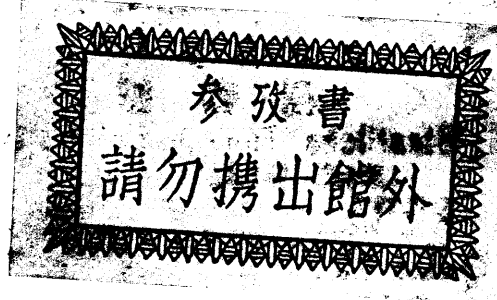 参攷書
請勿携出館外